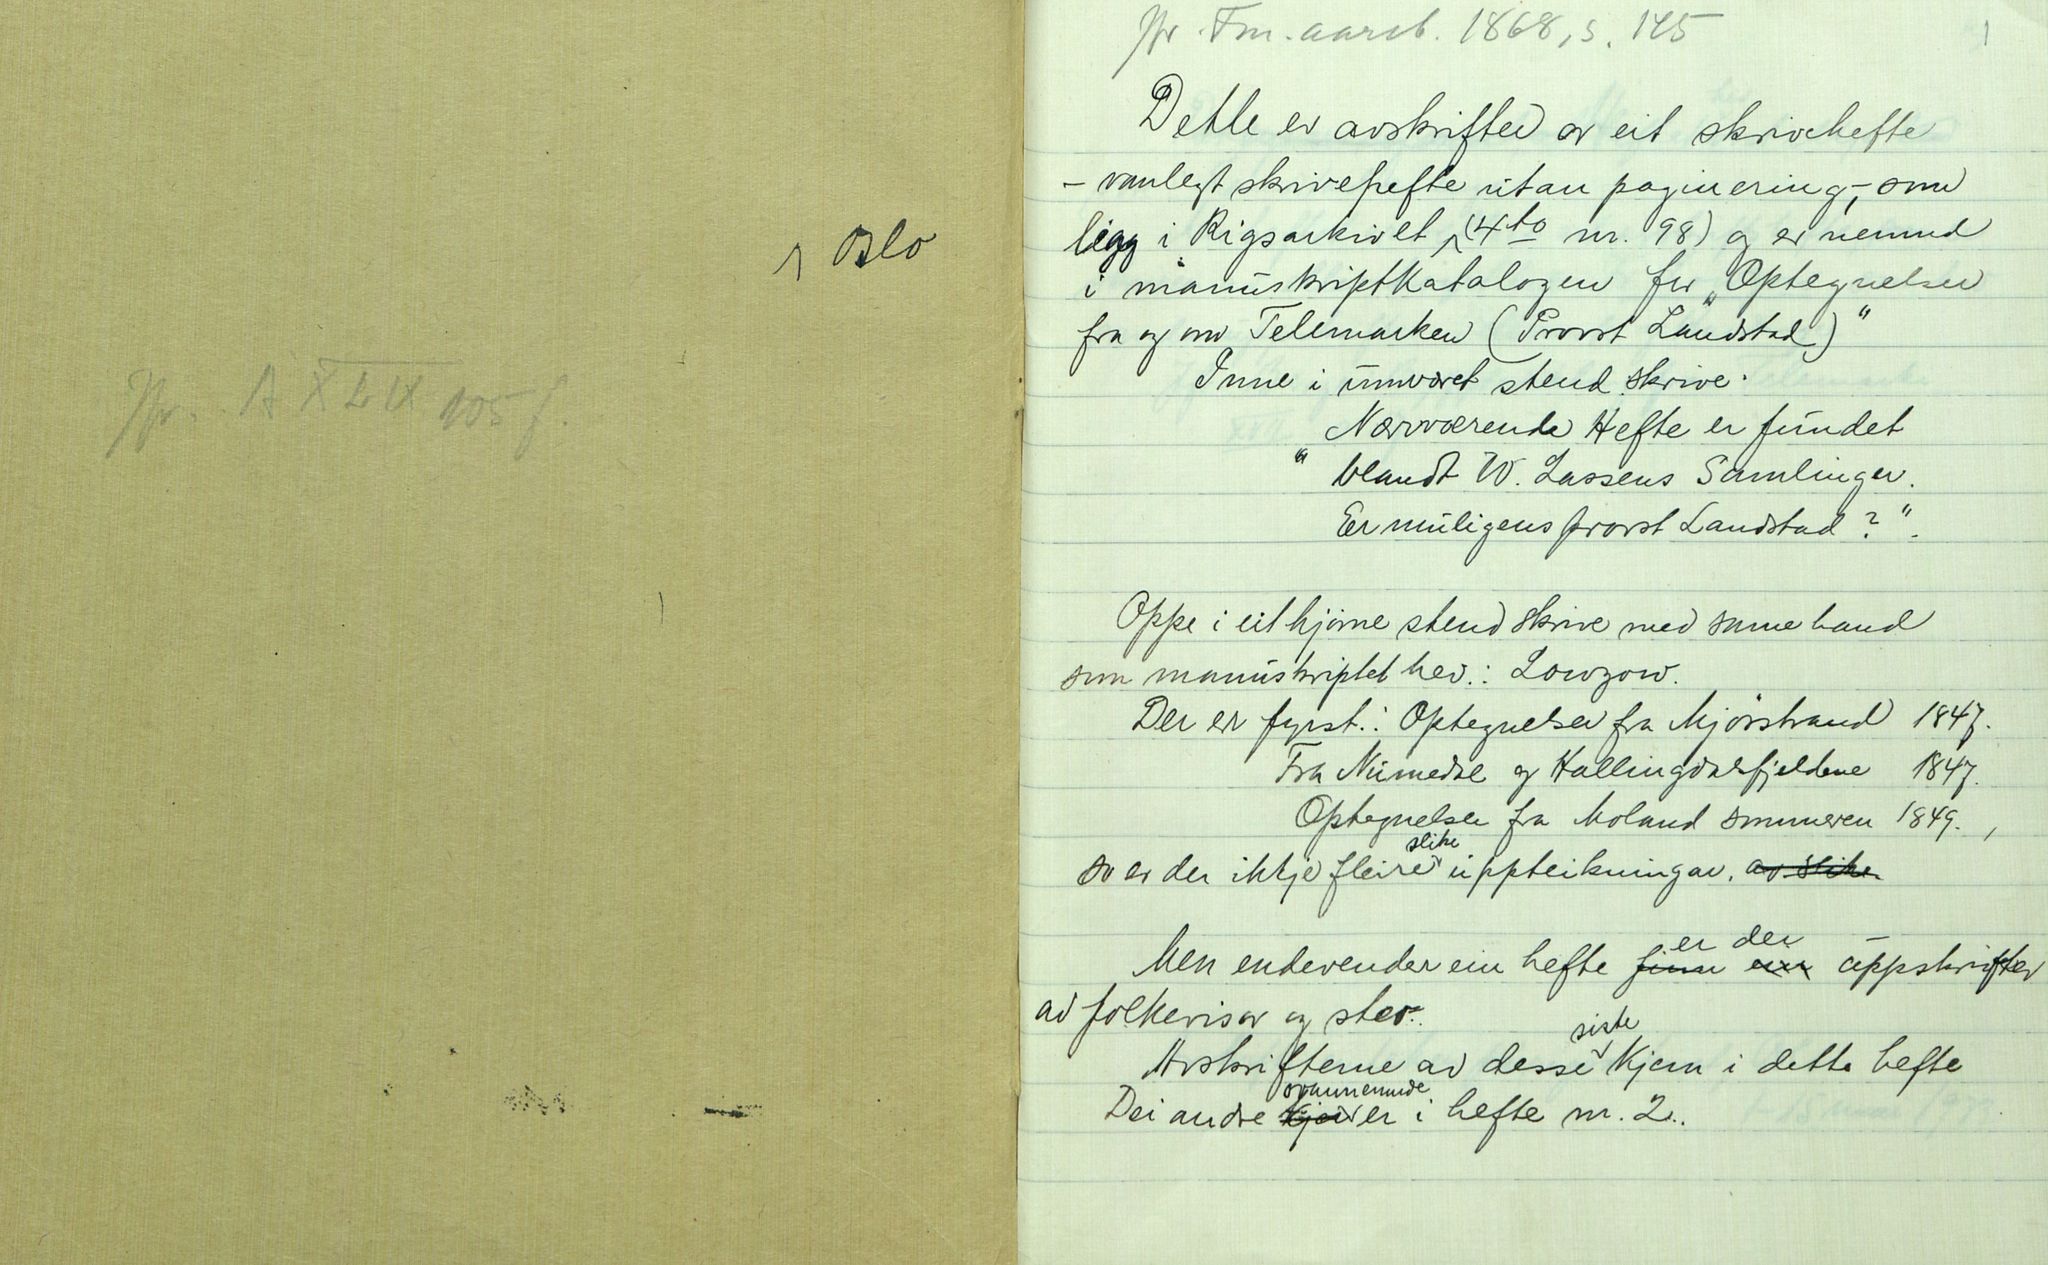 Oslo
Jfr. A XLIX 105 f.
Jfr. Fm. aarsb. 1868, s. 145
1
Dette er avskrifter av eit skrivehefte
- vanlegt skrivehefte utan paginering, - som
ligg i Rigsarkivet (4to nr. 98) og er nemnd
i manuskriptkatalogen fer „Optegnelser
fra og om Telemarken (Provst Landstad)"
Inne i umváret stend skrive.
Nærværende Hefte er fundet
" blandt W. Lassens Samlinger.
Er muligens provst Landstad?".
Oppe i eit hjörne stend skrive med same hand
som manuskriptet hev.: Lowzow.
Der er fyrst.: Optegnelser fra Mjösstrand 1847.
Fra Numedal og Hallingdalsfjeldene 1847.
Optegnelser fra Moland sommeren 1849. ,
so er der ikkje fleire slike uppteikningar. av slike
Men endevender ein hefte finn ein er der uppskrifter
av folkevisor og stev.
Avskrifterne av desse siste kjem i dette hefte
Dei andre ovannemnde er i hefte nr. 2.